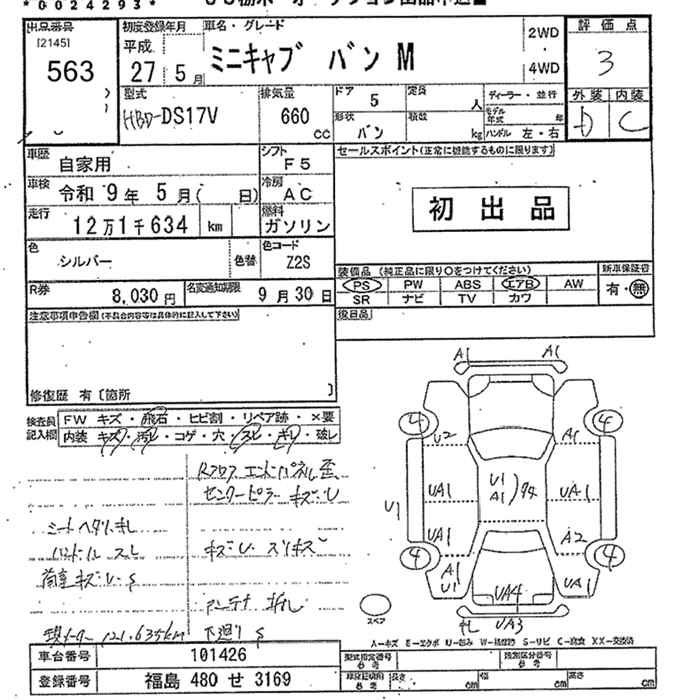 *0024293*
出品番号 初度登録年月 車名・グレード 2WD 評価点
[2145] 平成 ミニキャブ バン M 3
563 27年 5月 4WD
型式 排気量 ドア 5 定員 人 ディーラー・並行 外装 内装
HBD-DS17V 660 cc 形状 バン 積載 kg モデル年式 年 D C
ハンドル 左・右
車歴 自家用 シフト F5 セールスポイント(正常に機能するものに限ります)
車検 令和 9年 5月( 日) 冷房 AC
走行 12万1千634 km 燃料 ガソリン 初出品
色 シルバー 色替 色コード Z2S
装備品(純正品に限り○をつけてください) 新車保証書
R券 8,030円 名変通知期限 9月30日 PS PW ABS エアB AW 有・無
SR ナビ TV カワ
注意事項申告欄(不具合内容等は具体的に記入して下さい) 後日品
修復歴 有〔箇所 〕
検査員記入欄 FW キズ・飛石・ヒビ割・リペア跡・×要
内装 キズ・汚レ・コゲ・穴・スレ・キレ・破レ
A1 A1
4 4
U2 A1
UA1 U1 A1 UA1
U1
UA1 A2
4 4
A1 U1 UA1
UA4
UA3
スペア
Rフロア エンドパネル歪
センターピラー キズU
シートヘタリ
ハンドル スレ キズU スリキズ
荷室キズU S
アンテナ
現メーター 121,635km 下廻りS
A-キズ E-エクボ U-凹み W-補修跡 S-サビ C-腐食 XX-交換済
車台番号 101426 型式指定番号 参考 類別区分番号 参考
登録番号 福島 480 せ 3169 車検証積用 参考 長さ cm 幅 cm 高さ cm